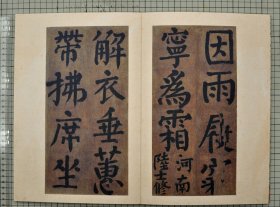 因雨履穿
寧爲霜 河南
陸士修
解衣垂蕙
帶拂席坐